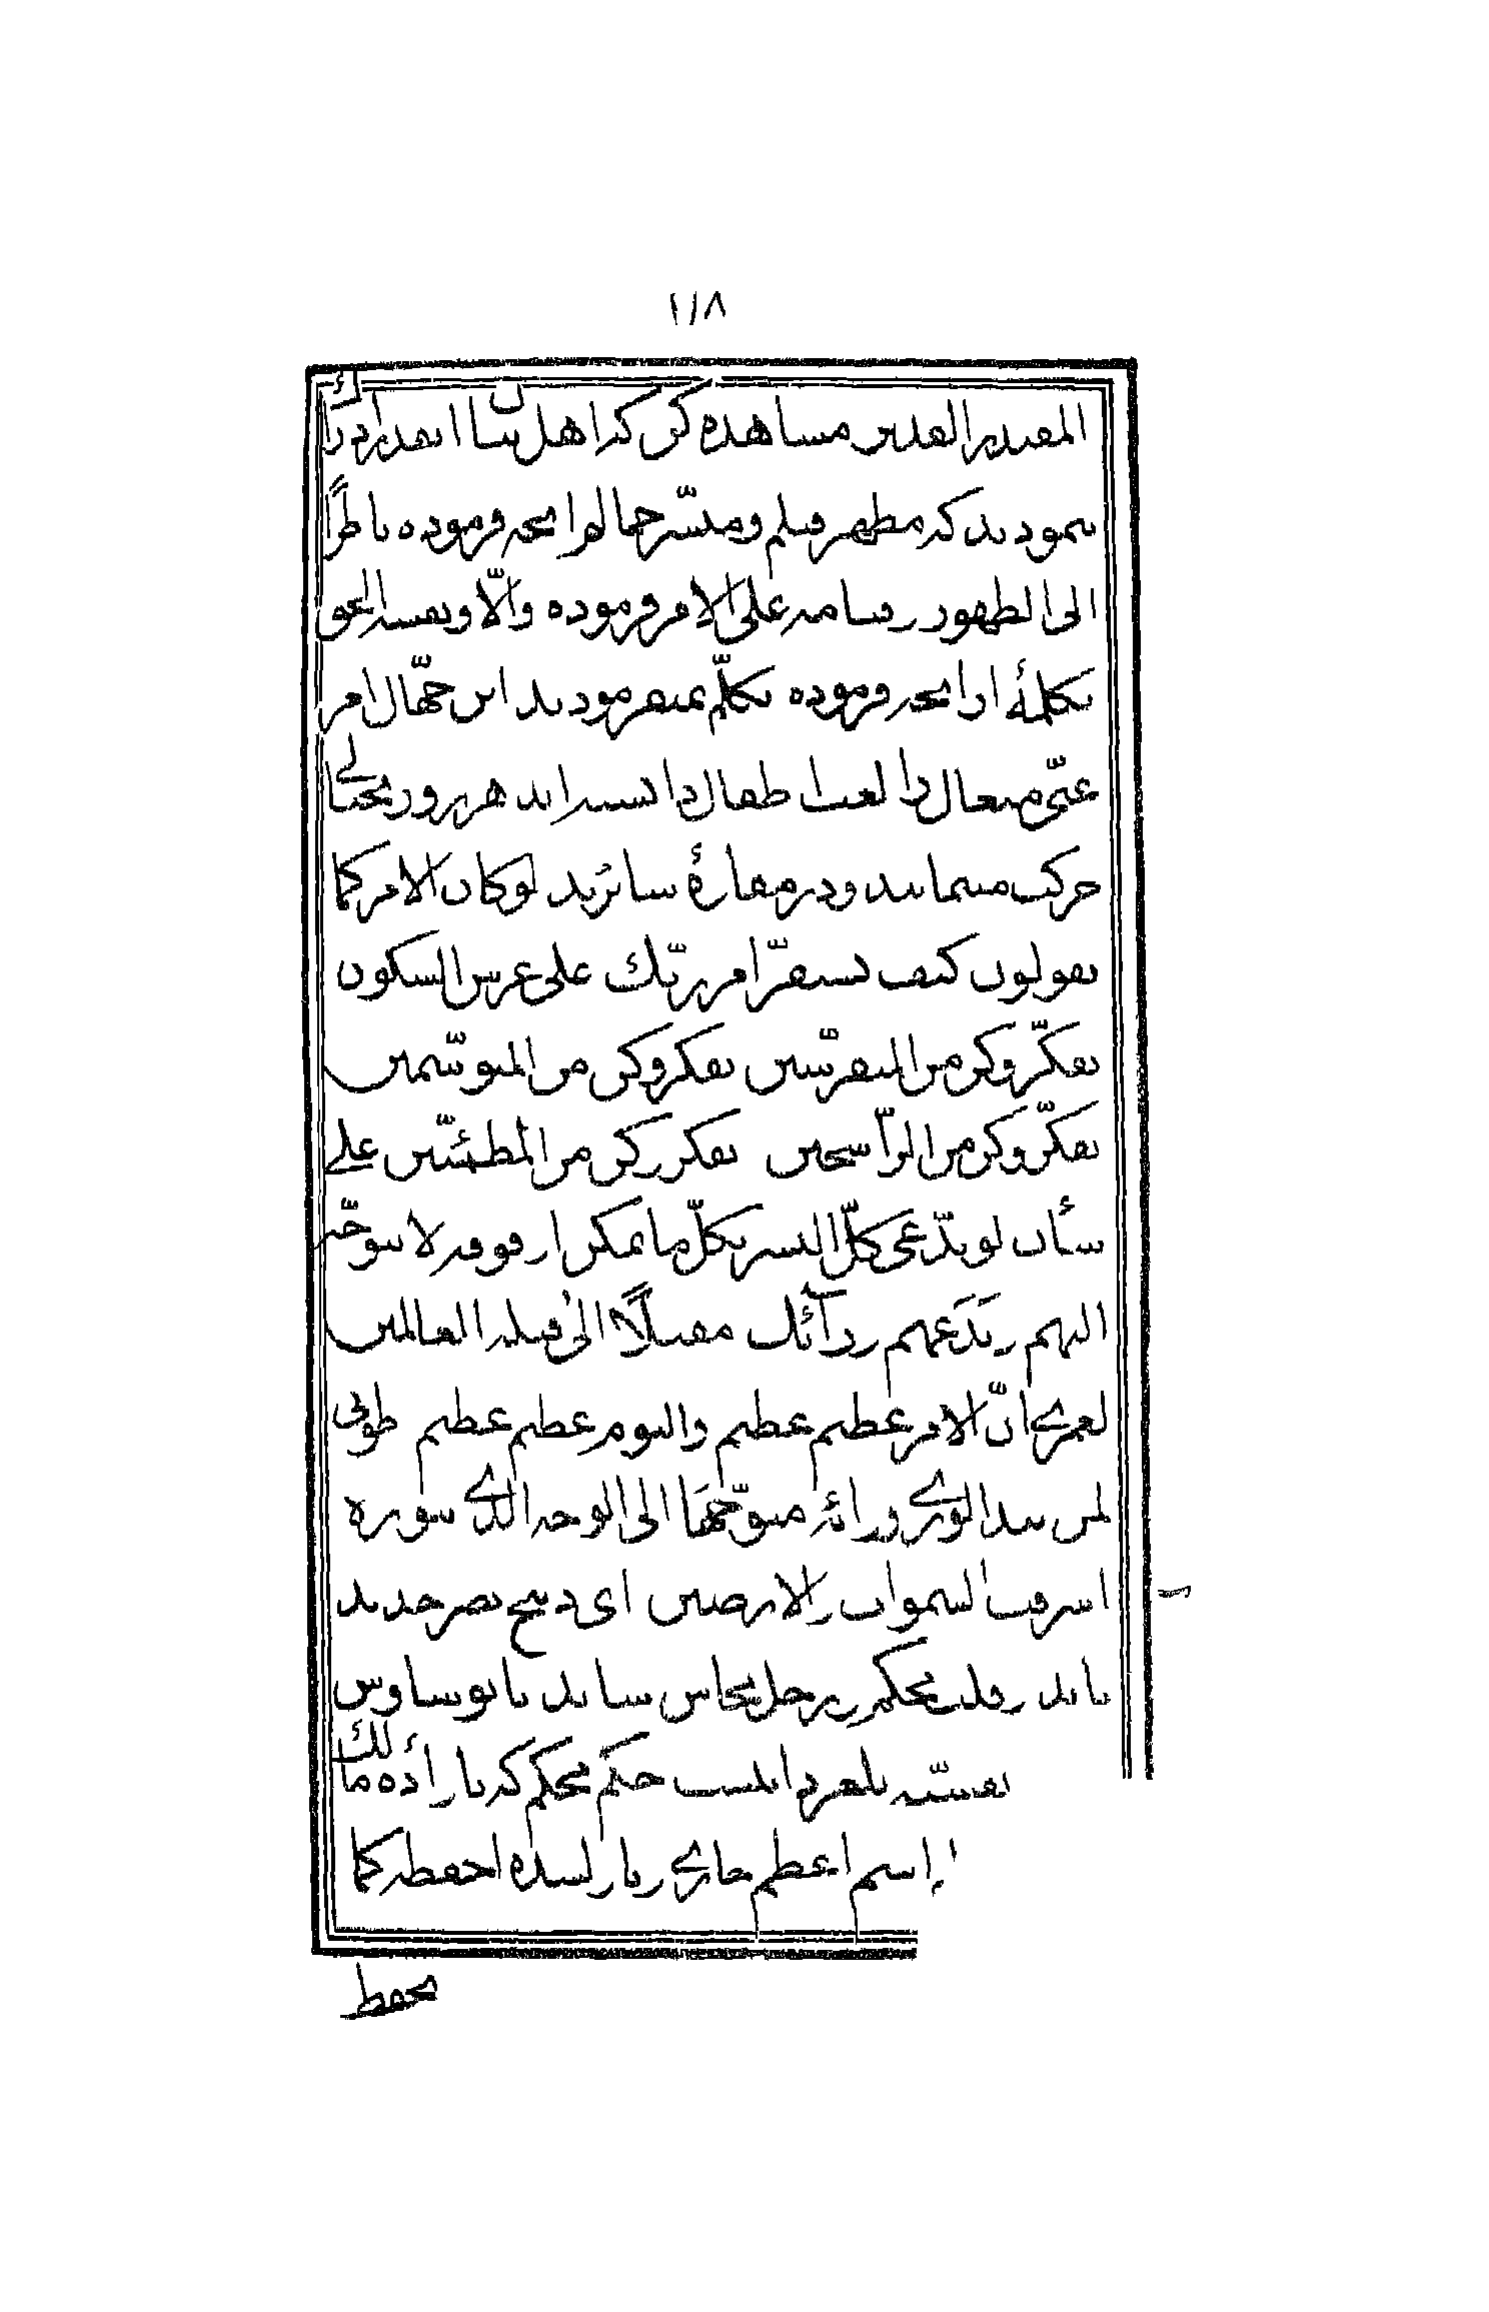 ١١٨
المقتدر القدیر مشاهده کن که اهل بیان اینقدر ادراک
ننمودند که مظهر قبلم و مبشّر جمالم آنچه فرموده ناظراً
الی الظهور و قیامه علی الامر فرموده و الّا و نفسه الحق
بکلمهٔ از آنچه فرموده تکلّم نمیفرمودند این جهّال امر
غنیّ متعال را لعب اطفال دانسته‌اند هر روز بخیالی
حرکت مینمایند و در مفازهٔ سائرند لو کان الامر کما
یقولون کیف یستقرّ امر ربّک علی عرش السکون
تفکّر و کن من المتفرّسین تفکر و کن من المتوسّمین
تفکّر و کن من الرّاسخین تفکر و کن من المطمئنّین علی
شأن لو یدّعی کلّ البشر بکلّ ما یمکن او فوقه لا تتوجّه
الیهم و تدعهم ورآئک مقبلاً الی قبلة العالمین
لعمری انّ الامر عظیم عظیم و الیوم عظیم عظیم طوبی
لمن نبذ الوری ورائه متوجّهاً الی الوجه الذی بنوره
اشرقت السموات و الارضین ای ذبیح بصر حدید
باید و قلب محکم و رجل نحاس شاید تا بوساوس
نفسیّه نلغزد اینست حکم محکم که باراده مالک
اسم اعظم جاری و نازل شده احفظه کما
تحفظ